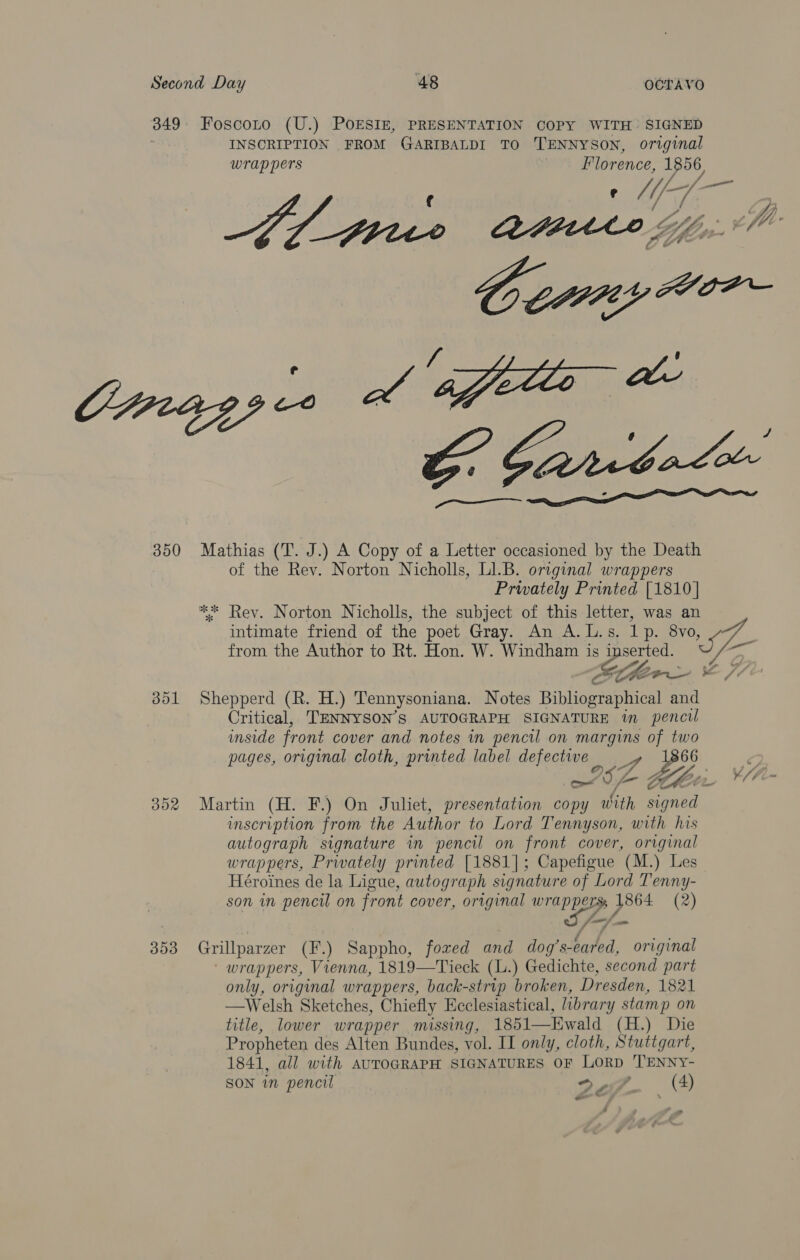 Second Day 48 OCTAVO
349 Foscolo (U.) Poesie, PRESENTATION COPY WITH SIGNED
INSCRIPTION FROM GARIBALDI TO TENNYSON, original
wrappers Florence, 1856,
Al mio amico
Tennyson
Omaggio d'affetto di
G. Garibaldi
350 Mathias (T. J.) A Copy of a Letter occasioned by the Death
of the Rev. Norton Nicholls, Ll.B. original wrappers
Privately Printed [1810]
*** Rev. Norton Nicholls, the subject of this letter, was an
intimate friend of the poet Gray. An A.L.s. 1 p. 8vo,
from the Author to Rt. Hon. W. Windham is inserted.
351 Shepperd (R. H.) Tennysoniana. Notes Bibliographical and
Critical, TENNYSON'S AUTOGRAPH SIGNATURE in pencil
inside front cover and notes in pencil on margins of two
pages, original cloth, printed label defective 1866
352 Martin (H. F.) On Juliet, presentation copy with signed
inscription from the Author to Lord Tennyson, with his
autograph signature in pencil on front cover, original
wrappers, Privately printed [1881]; Capefigue (M.) Les
Héroïnes de la Ligue, autograph signature of Lord Tenny-
son in pencil on front cover, original wrappers, 1864 (2)
353 Grillparzer (F.) Sappho, foxed and dog's-eared, original
wrappers, Vienna, 1819—Tieck (L.) Gedichte, second part
only, original wrappers, back-strip broken, Dresden, 1821
—Welsh Sketches, Chiefly Ecclesiastical, library stamp on
title, lower wrapper missing, 1851—Ewald (H.) Die
Propheten des Alten Bundes, vol. II only, cloth, Stuttgart,
1841, all with AUTOGRAPH SIGNATURES OF LORD TENNY-
SON in pencil (4)